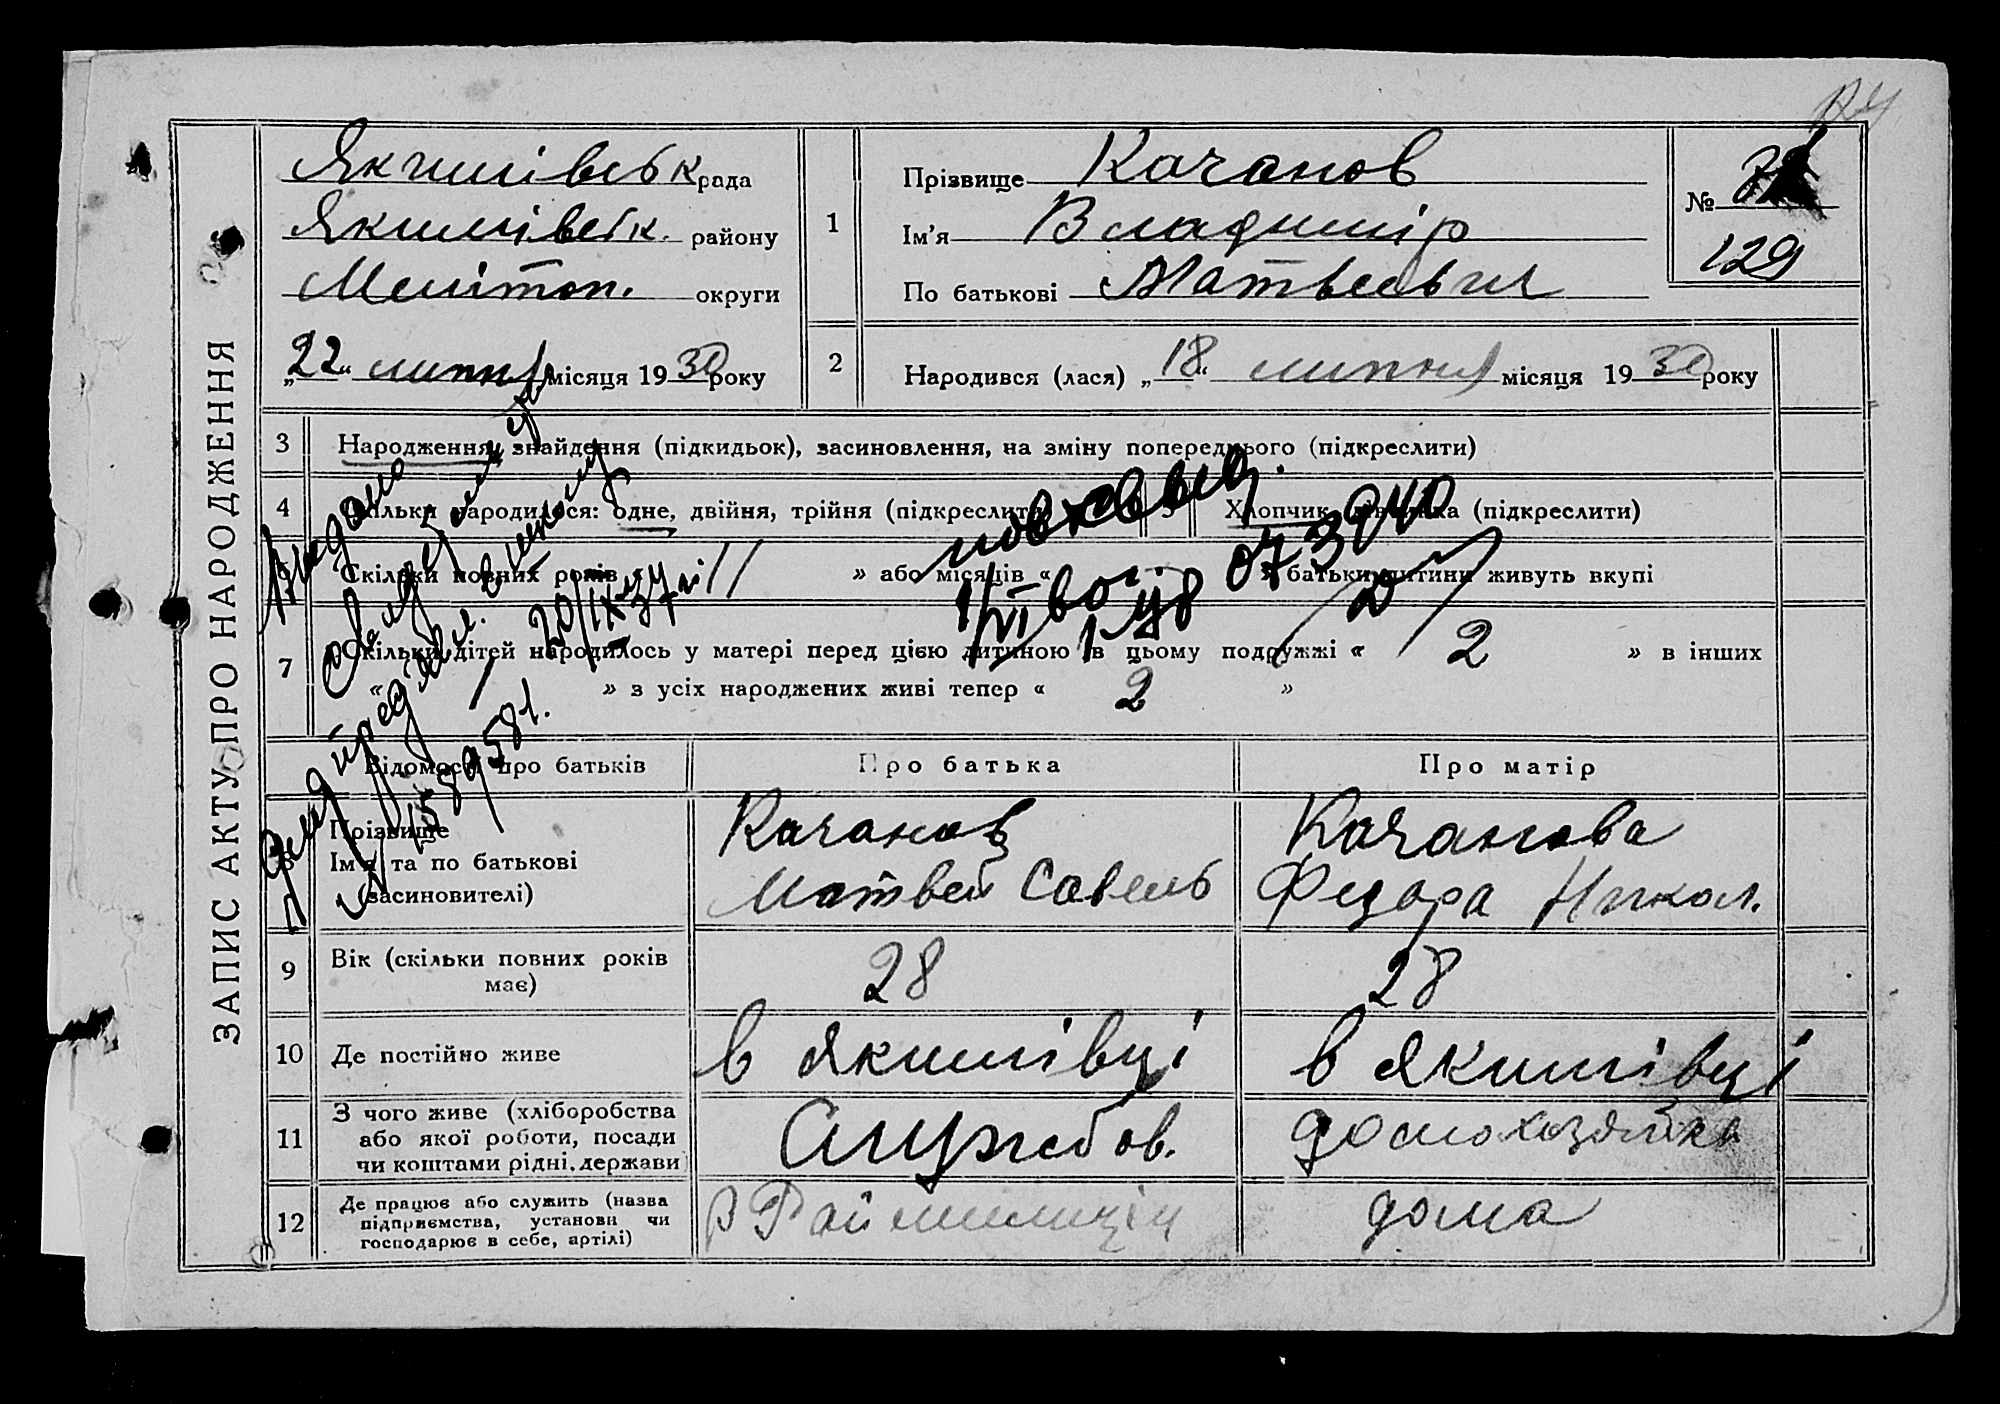 ЗАПИС АКТУ ПРО НАРОДЖЕННЯ
Якимівськ рада
Якимівськ. району
Мелітоп. округи
„22“ липня місяця 1930 року
1
Прізвище Качанов
Ім'я Владимір
По батькові Матвеевич
№
129
2
Народився (лася) „18“ липня місяця 1930 року
3 Народження, знайдення (підкидьок), засиновлення, на зміну попереднього (підкреслити)
4 Скільки народилося: одне, двійня, трійня (підкреслити) 5 Хлопчик, дівчинка (підкреслити)
Скільки повних років « 11 » або місяців « » батьки дитини живуть вкупі
7 Скільки дітей народилось у матері перед цією дитиною в цьому подружжі « 2 » в інших
« » з усіх народжених живі тепер « 2 »
Видано
в школу
20/IX 37
1589581.
073940
Відомості про батьків Про батька Про матір
8 Прізвище Качанов Качанова
Ім'я та по батькові Матвей Савель Федора Никол.
(засиновителі)
9 Вік (скільки повних років має) 28 28
10 Де постійно живе в Якимівці в Якимівці
11 З чого живе (хліборобства або якої роботи, посади чи коштами рідні, держави) Службов. домохозяйка
12 Де працює або служить (назва підприємства, установи чи господарює в себе, артілі) В Райміліціи дома